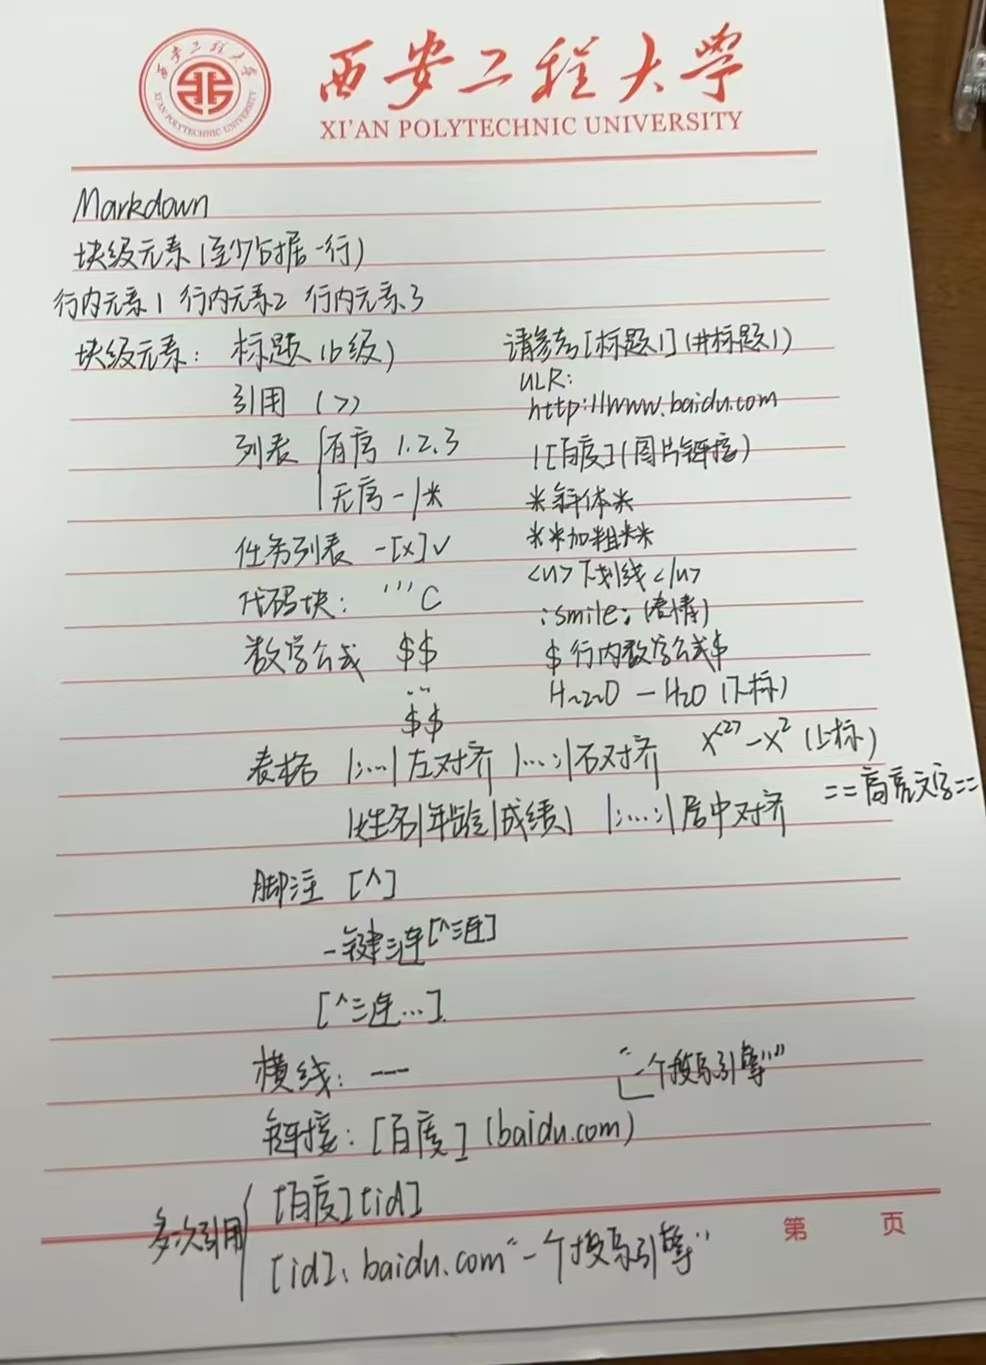 西安工程大学
XI'AN POLYTECHNIC UNIVERSITY
西安工程大学
XI'AN POLYTECHNIC UNIVERSITY
Markdown
块级元素(至少占据一行)
行内元素1 行内元素2 行内元素3
块级元素: 标题(6级)
引用 (>)
列表 有序 1.2.3
无序 -/*
任务列表 -[x]√
代码块: ```C
数学公式 $$
...
$$
表格 |:...|左对齐 |...:|右对齐
|姓名|年龄|成绩| |:...:|居中对齐
脚注 [^]
一键三连[^三连]
[^三连...]
横线: ---
链接: [百度](baidu.com)
"一个搜索引擎"
多次引用
[百度][id]
[id]: baidu.com "一个搜索引擎"
请参考[标题1](#标题1)
ULR:
http://www.baidu.com
![百度](图片链接)
*斜体*
**加粗**
<u>下划线</u>
:smile: (表情)
$行内数学公式$
H~2~O - H2O (下标)
X^2 (上标)
==高亮文字==
第 页